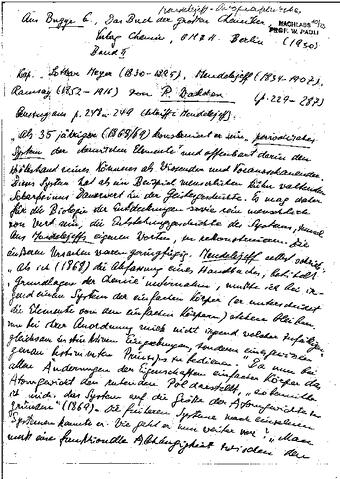 Mendelejeff - Autographisches
NACHLASS
PROF. W. PAULI
Aus Bugge G., Das Buch der grossen Chemiker
Verlag Chemie, GMBH. Berlin (1930)
Band II
Kap. Lothar Meyer (1830-1895), Mendelejeff (1834-1907),
Ramsay (1852-1916) von P. Walden (p. 229-287)
Auszug aus p. 248-249 (betrifft Mendelejeff).
"Als 35 jähriger (1868/69) konstruiert er sein "periodisches
System der chemischen Elemente" und offenbart darin den
Höhestand seines Könnens als Wissender und Vorausschauender.
Dieses System hat als ein Beispiel menschlichen kühn waltenden
Dauerwert in der Geistesgeschichte. Es mag daher
für die Biologie der Entdeckungen sowie rein menschlich
von Wert sein, die Entstehungsgeschichte des Systems,
aus Mendelejeffs eigenen Worten, zu rekonstruieren. Die
äusseren Ursachen waren geringfügig. Mendelejeff selbst schreibt:
"Als ich (1868) die Abfassung eines Handbuchs, betitelt
"Grundlagen der Chemie" unternahm, musste ich bei
irgend einem System der einfachen Körper (er unterscheidet
die Elemente von den einfachen Körpern) stehen bleiben
um bei deren Anordnung mich nicht irgend welcher zufälligen,
gleichsam instinktiven Umgebungen, sondern eines
genau bestimmten Prinzips zu bedienen." "Da nun bei
allen Änderungen der Eigenschaften einfacher Körper das
Atomgewicht den ruhenden Pol darstellt,
ich mich, das System auf die Grösse der Atomgewichte zu
gründen" (1869). Die früheren Systeme nach einzelnen
Systemen kannte er. Wie geht er nun weiter vor? "Man
muss eine funktionelle Abhängigkeit zwischen den